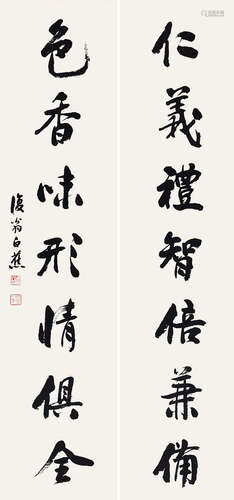 仁義禮智信兼備
色香味形情俱全
復翁白蕉